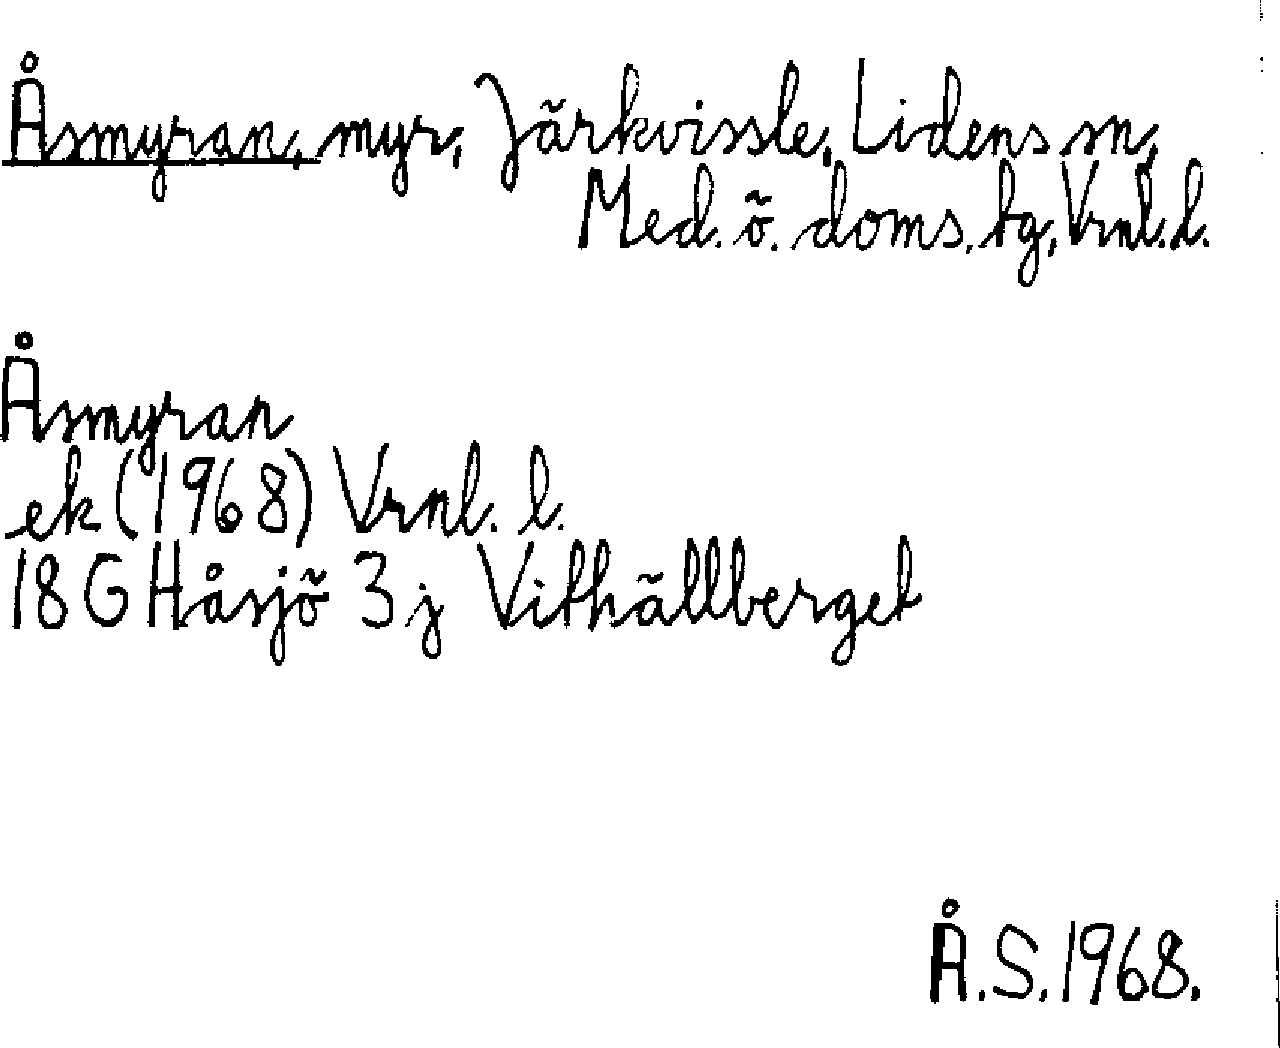 Åsmyran, myr, Järkvissle, Lidens sn,
Med. ö. doms. tg, Vrnl. l.
Åsmyran
ek (1968) Vrnl. l.
18 G Håsjö 3 j Vithällberget
Å.S. 1968.